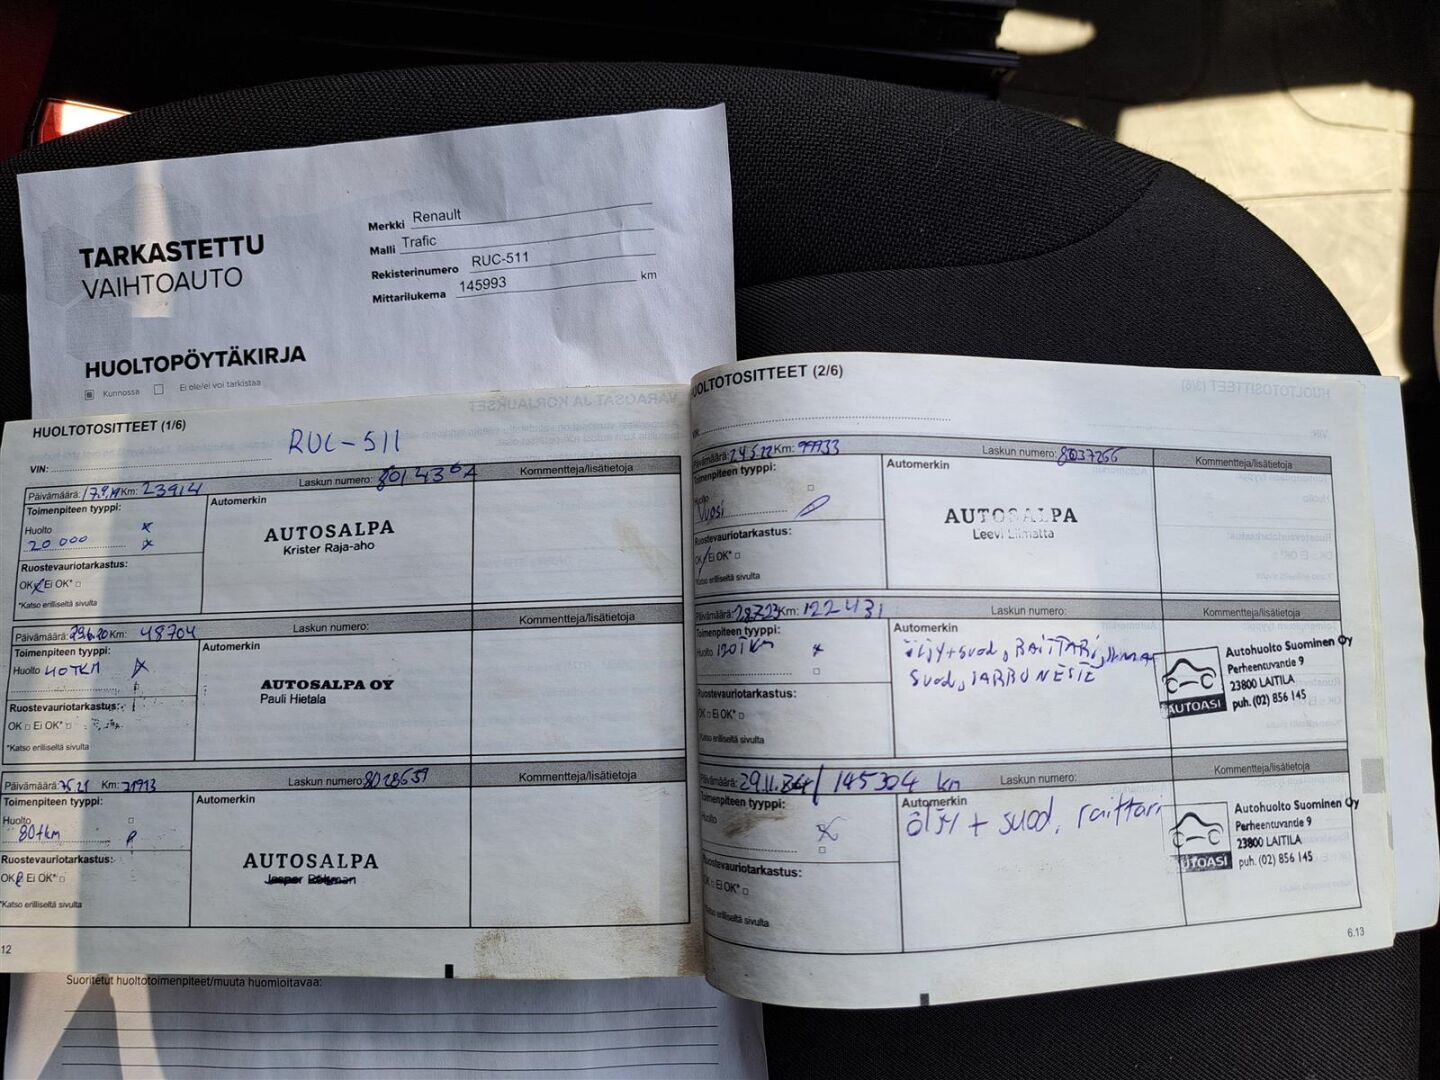 TARKASTETTU
VAIHTOAUTO
Merkki Renault
Malli Trafic
Rekisterinumero RUC-511
Mittarilukema 145993 km
HUOLTOPÖYTÄKIRJA
Kunnossa Ei ole/ei voi tarkistaa
HUOLTOTOSITTEET (1/6)
RUC-511
VIN:
Päivämäärä: 17.9.19 Km: 23914 Laskun numero: Kommentteja/lisätietoja
Toimenpiteen tyyppi: Automerkin
Huolto x
20 000 x
AUTOSALPA
Krister Raja-aho
Ruostevauriotarkastus:
OK Ei OK*
*Katso erilliseltä sivulta
Päivämäärä: 29.6.20 Km: 48704 Laskun numero: Kommentteja/lisätietoja
Toimenpiteen tyyppi: Automerkin
Huolto 40TKM x
AUTOSALPA OY
Pauli Hietala
Ruostevauriotarkastus:
OK Ei OK*
*Katso erilliseltä sivulta
Päivämäärä: Km: Laskun numero: 8028659 Kommentteja/lisätietoja
Toimenpiteen tyyppi: Automerkin
Huolto
80tkm
AUTOSALPA
Ruostevauriotarkastus:
OK Ei OK*
*Katso erilliseltä sivulta
12
HUOLTOTOSITTEET (2/6)
VIN:
Päivämäärä: 24.5.22 Km: 99933 Laskun numero: 8037266 Kommentteja/lisätietoja
Toimenpiteen tyyppi: Automerkin
Huolto
Vuosi
AUTOSALPA
Leevi Liimatta
Ruostevauriotarkastus:
OK Ei OK*
*Katso erilliseltä sivulta
Päivämäärä: Km: 122431 Laskun numero: Kommentteja/lisätietoja
Toimenpiteen tyyppi: Automerkin
Huolto 120TKM x
öljy+suod, RAITTARI,
suod, JARRUNESTE
AUTOASI
Autohuolto Suominen Oy
Perheentuvantie 9
23800 LAITILA
puh. (02) 856 145
Ruostevauriotarkastus:
OK Ei OK*
*Katso erilliseltä sivulta
Päivämäärä: 29.11. / 145304 km Laskun numero: Kommentteja/lisätietoja
Toimenpiteen tyyppi: Automerkin
Huolto x
öljy + suod, raittari
AUTOASI
Autohuolto Suominen Oy
Perheentuvantie 9
23800 LAITILA
puh. (02) 856 145
Ruostevauriotarkastus:
OK Ei OK*
*Katso erilliseltä sivulta
6.13
Suoritetut huoltotoimenpiteet/muuta huomioitavaa: